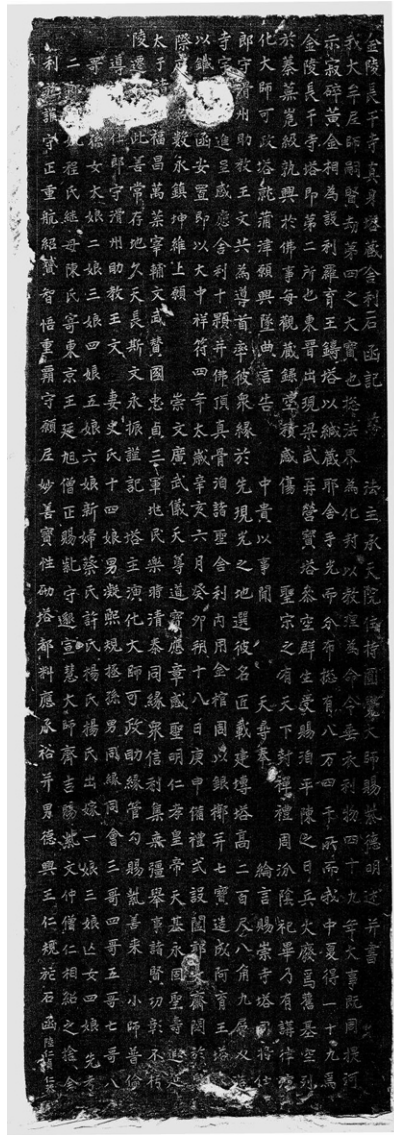 金陵長干寺真身塔藏舍利石函記 法主承天院住持圓覺大師賜紫德明述并書
我大牟尼師嗣賢劫第四之大寶也揔法界為化封以教理為命令垂衣利物四十九年大事既周提河
示寂碎黃金相為設利羅育王鑄塔以緘藏耶舍手光而分布揔有八万四千所而我中夏得一十九焉
金陵長干寺塔即第二所也東晉出現梁武再營寶塔參空群生受賜洎平陳之日兵火廢焉舊基空列
於蓁蕪峻級孰興於佛事每觀藏錄空積感傷 聖宗之有天下封禪禮周汾陰祀畢乃有講律演
化大師可政塔就蒲津願興墜典言告 中貴以事聞 天尋奉 綸言賜崇寺塔同將仕
郎守滑州助教王文共為導首率彼眾緣於先現光之地選彼名匠載建塼塔高二百尺八角九層又造
寺宇 進呈感應舍利十顆并佛頂真骨洎諸聖舍利內用金棺周以銀槨并七寶造成阿育王塔
以鐵 函安置即以大中祥符四年太歲辛亥六月癸卯朔十八日庚申備禮式設闔郭大齋闔於
際 數永鎮坤維上願 崇文廣武儀天尊道寶應章感聖明仁孝皇帝天基永固聖壽遐延
太子諸 福昌萬葉宰輔文武贊國忠貞三軍地民樂時清泰同緣眾信利集無疆舉事諸賢功彰不朽
陵遷 此善常存地久天長斯文永振謹記 塔主演化大師可政 助緣管勾賜紫善來 小師普倫
導 仕郎守滑州助教王文 妻史氏十四娘男凝熙規極孫男同緣同會三哥四哥五哥七哥八
哥 孫女大娘二娘三娘四娘五娘六娘新婦蔡氏許氏楊氏楊氏出嫁一娘三娘亡女四娘先考
二 程氏繼母陳氏寄東京王延旭僧正賜紫守邈宣慧大師齊吉賜紫文仲僧仁相紹之 舍
利 守正重航紹贇智悟重霸守願尼妙善寶性砌塔都料應承裕并男德興王仁規施石函陸仁